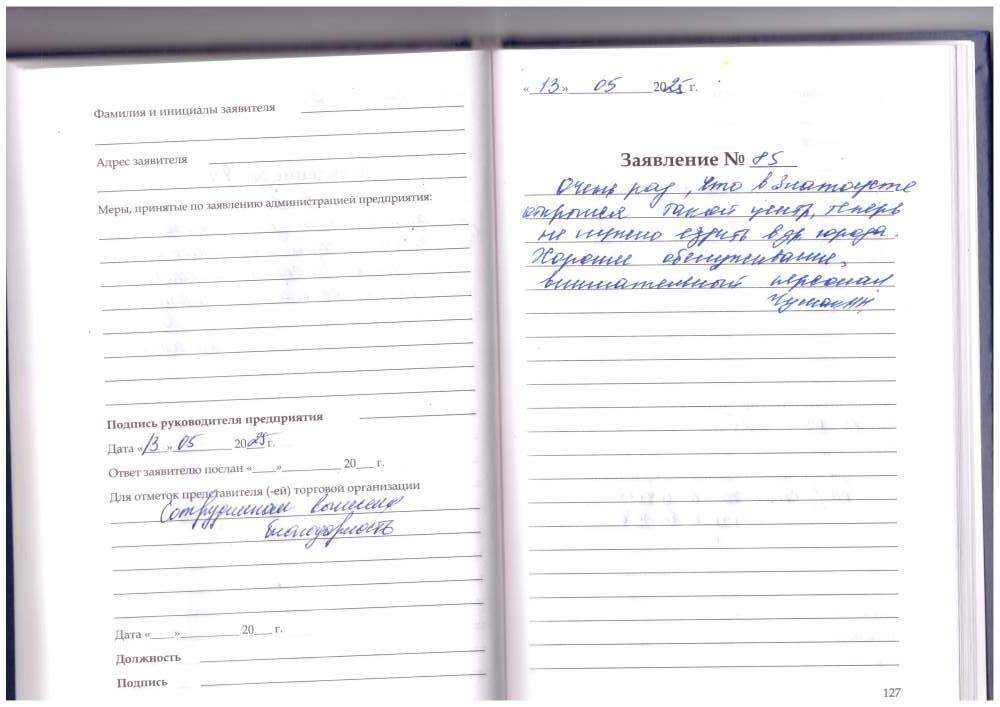 Фамилия и инициалы заявителя
Адрес заявителя
Меры, принятые по заявлению администрацией предприятия:
Подпись руководителя предприятия
Дата «13» 05 2025 г.
Ответ заявителю послан «____»__________ 20___ г.
Для отметок представителя (-ей) торговой организации
Сотрудникам вынесена
благодарность
Дата «____»__________ 20___ г.
Должность
Подпись
«13» 05 2025 г.
Заявление № 85
Очень рад, что в Златоусте
открылся такой центр, теперь
не нужно ездить в др. города.
Хорошее обслуживание,
внимательный персонал
127